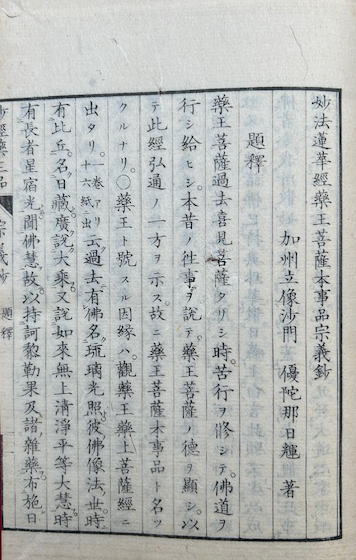 妙法蓮華經藥王菩薩本事品宗義鈔
加州立像沙門 優陀那日輝 著
題釋
藥王菩薩過去喜見菩薩タリシ時。苦行ヲ修シテ佛道ヲ
行シ給ヒシ。本昔ノ徃事ヲ說テ。藥王菩薩ノ德ヲ顯シ。以
テ此經弘通ノ一方ヲ示ス。故ニ藥王菩薩本事品ト名ツ
クルナリ。〇藥王ト號スル因緣ハ。觀藥王藥上菩薩經ニ
出タリ。一卷アリ十六紙ニ出 云過去有佛。名琉璃光照。彼佛像法世。時
有比丘。名日藏。廣說大乘。又說如來無上淸淨平等大慧。時
有長者星宿光。聞佛慧故。以持訶黎勒果及諸雜藥。布施日
妙經藥王品 宗義鈔 題釋